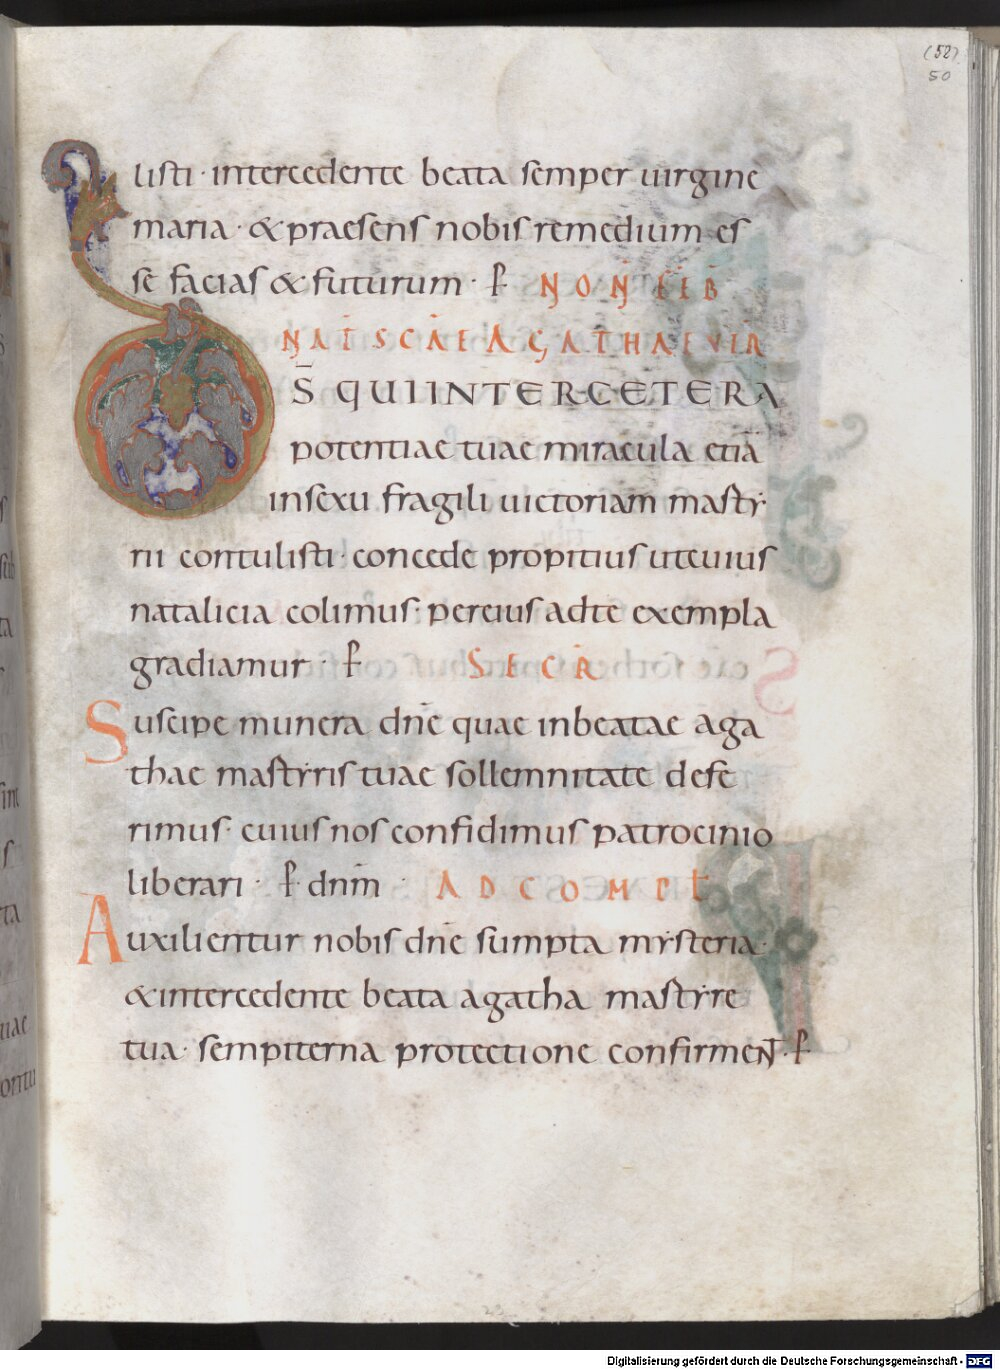 (52)
50
listi · intercedente beata semper uirgine
maria · & praesens nobis remedium es
se facias & futurum · ꝑ NON FEB
NAT SCAE AGATHAE VIR
D̄S QUI INTER CETERA
potentiae tuae miracula etiā
in sexu fragili uictoriam marty
rii contulisti · concede propitius ut cuius
natalicia colimus · per eius ad te exempla
gradiamur · ꝑ SECR̄
Suscipe munera dn̄e quae in beatae aga
thae martyris tuae sollemnitate defe
rimus · cuius nos confidimus patrocinio
liberari · ꝑ dnm̄ · AD COMPL
Auxilientur nobis dn̄e sumpta mysteria ·
& intercedente beata agatha martyre
tua · sempiterna protectione confirment · ꝑ
Digitalisierung gefördert durch die Deutsche Forschungsgemeinschaft - DFG